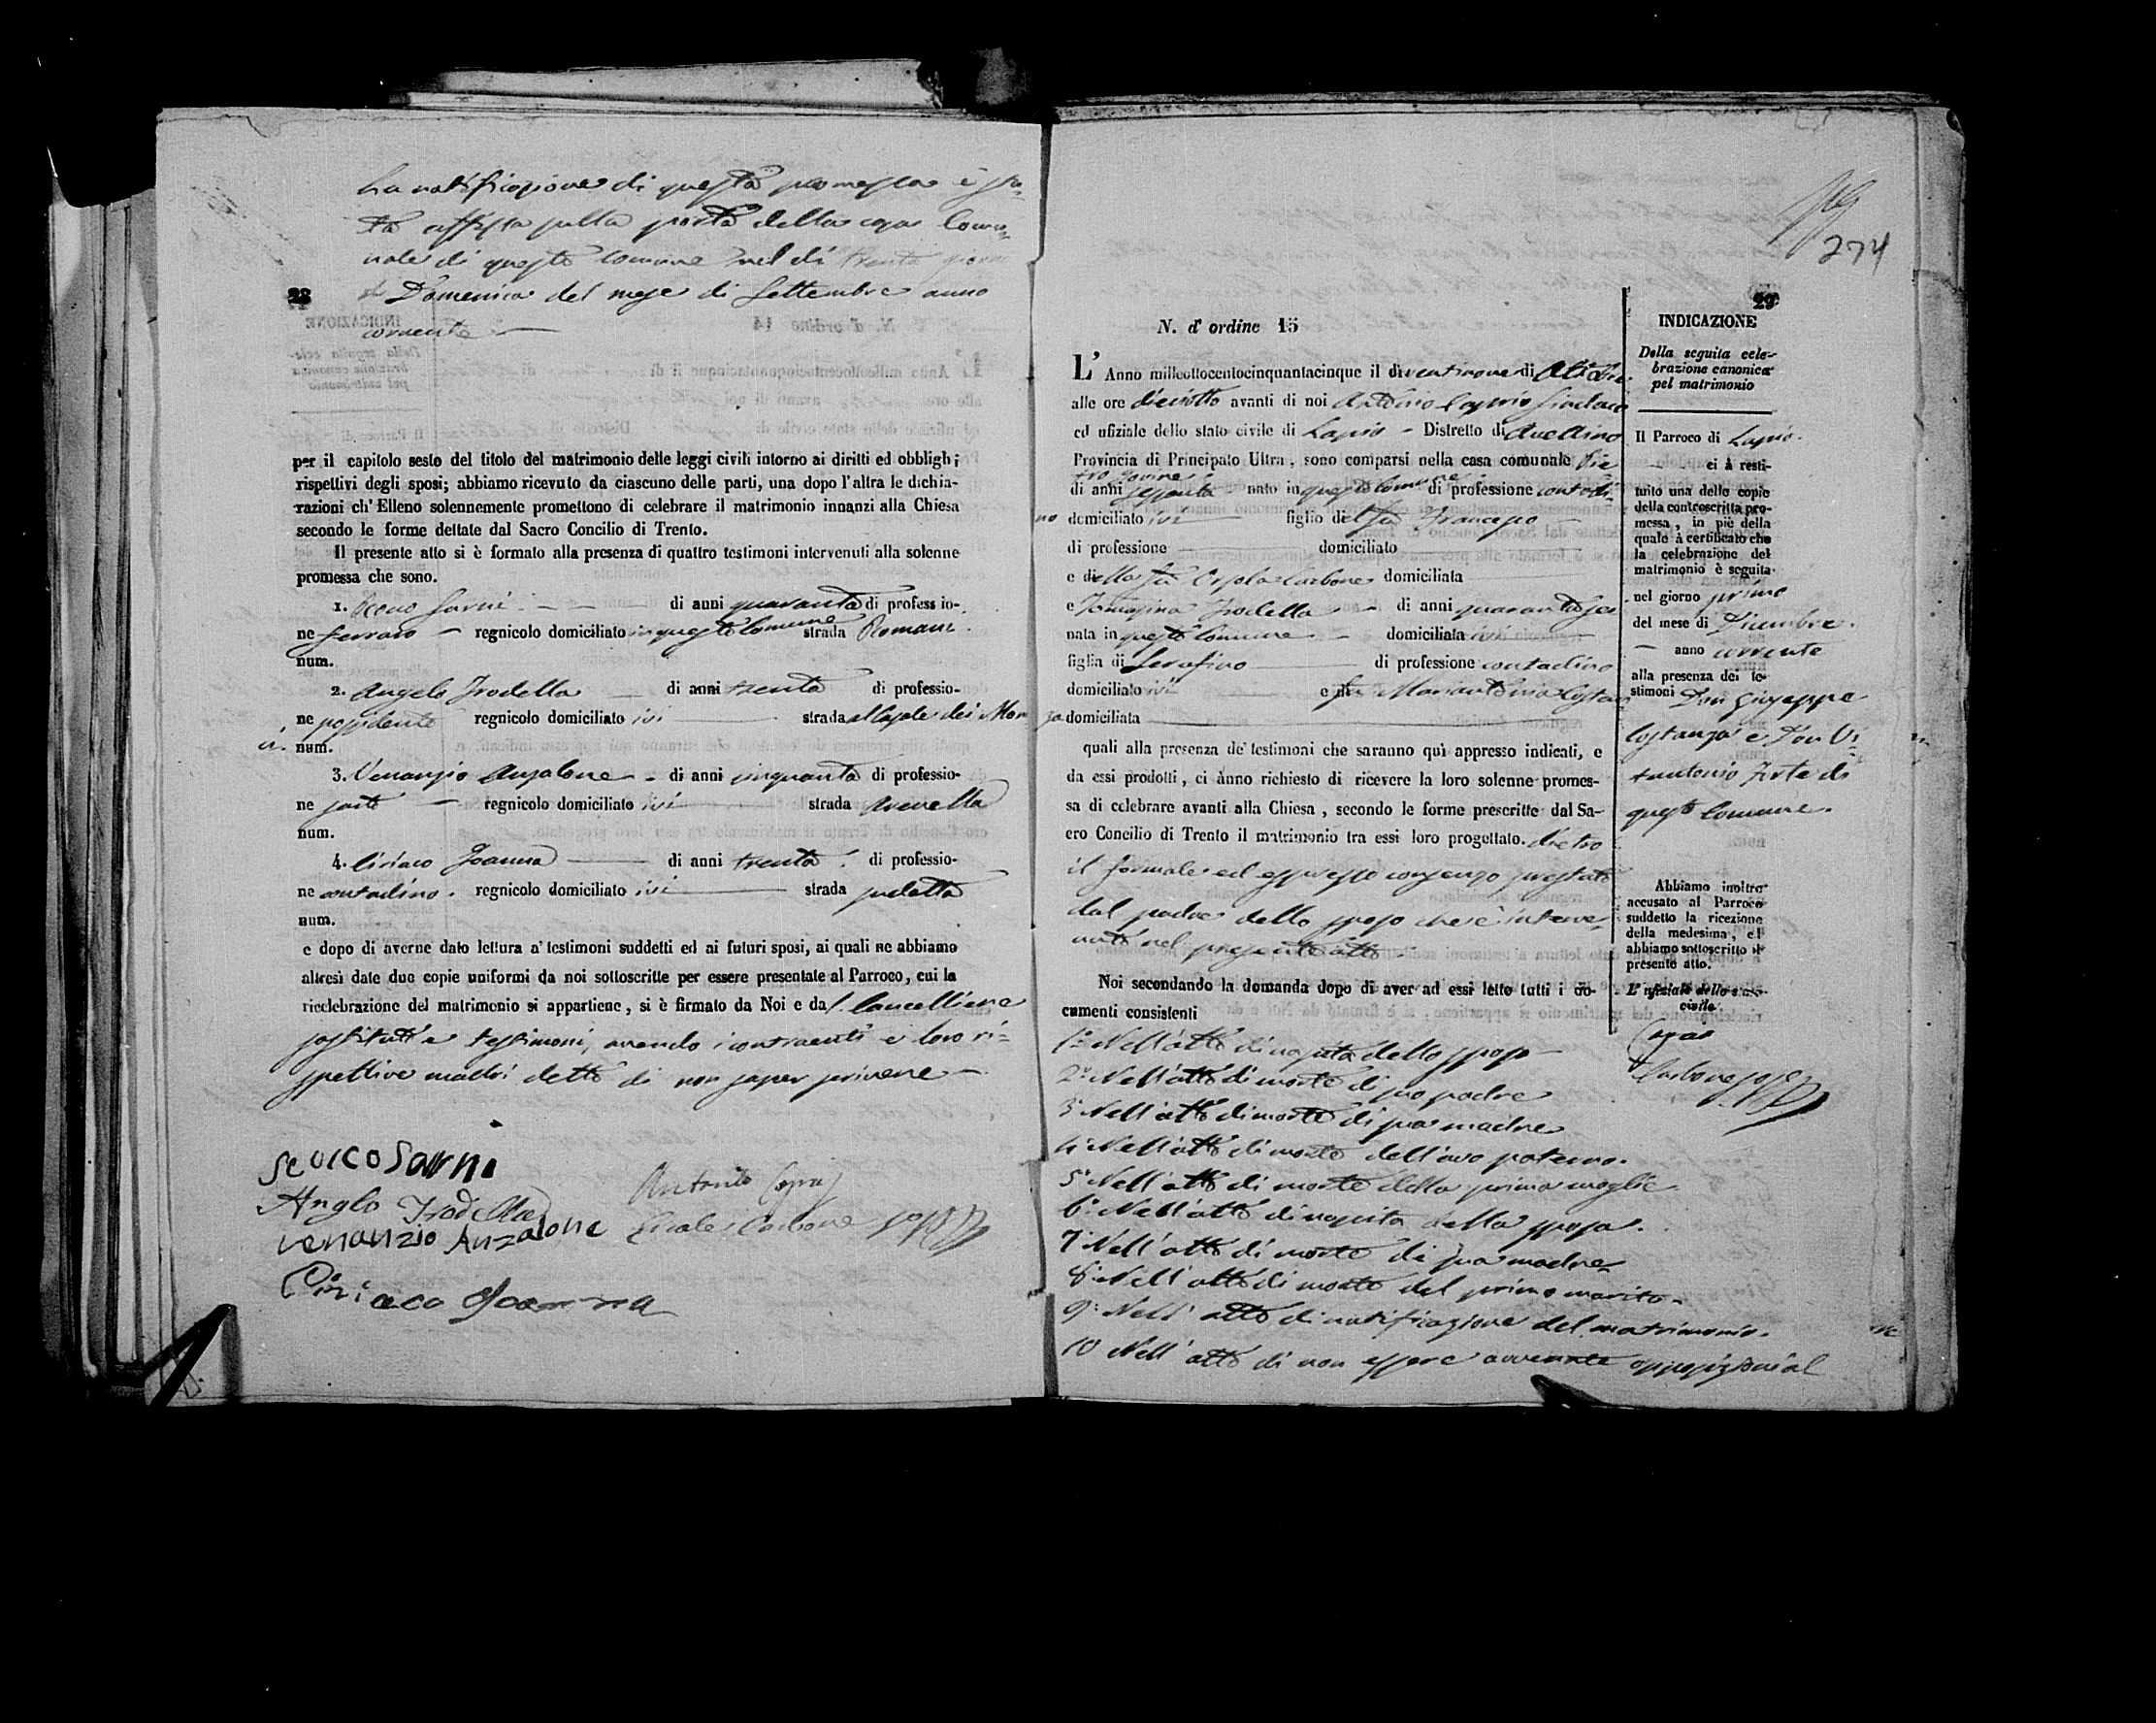 La notificazione di questa promessa è sta-
ta affissa sulla porta della casa Comu-
nale di questo Comune nel dì trenta giorno
di Domenica del mese di Settembre anno
28
corrente
per il capitolo sesto del titolo del matrimonio delle leggi civili intorno ai diritti ed obblighi
rispettivi degli sposi; abbiamo ricevuto da ciascuno delle parti, una dopo l'altra le dichia-
razioni ch' Elleno solennemente promettono di celebrare il matrimonio innanzi alla Chiesa
secondo le forme dettate dal Sacro Concilio di Trento.
Il presente atto si è formato alla presenza di quattro testimoni intervenuti alla solenne
promessa che sono.
1. Rocco Sarni di anni quaranta di professio-
ne ferraro regnicolo domiciliato in questo Comune strada Romani
num.
2. Angelo Trodella di anni trenta di professio-
ne possidente regnicolo domiciliato ivi strada
num.
3. Venanzio Anzalone di anni cinquanta di professio-
ne sarto regnicolo domiciliato ivi strada
num.
4. Ciriaco Joanna di anni trenta di professio-
ne contadino. regnicolo domiciliato ivi strada
num.
e dopo di averne dato lettura a' testimoni suddetti ed ai futuri sposi, ai quali ne abbiamo
altresì date due copie uniformi da noi sottoscritte per essere presentate al Parroco, cui la
ricelebrazione del matrimonio si appartiene, si è firmato da Noi e dal Cancelliere
sostituto e testimoni, avendo i contraenti e loro ri-
spettive madri detto di non saper scrivere
Sarni
Anglo Trodella
Antonio
venanzio Anzalone
Carbone
Ciriaco Joanna
274
29
N. d' ordine 15
L' Anno milleottocentocinquantacinque il dì ventinove di Ottobre
alle ore dieciotto avanti di noi Antonio Caprio Sindaco
ed ufiziale dello stato civile di Lapio Distretto di Avellino
Provincia di Principato Ultra, sono comparsi nella casa comunale Pie
tro
di anni sessanta nato in questo Comune di professione contadi-
no domiciliato ivi figlio del fu Francesco
di professione domiciliato
e della fu Orsola Carbone domiciliata
e Tomasina Trodella di anni quarantasei
nata in questo Comune domiciliata ivi
figlia di Serafino di professione contadino
domiciliato ivi e fu Mariantonia
domiciliata
quali alla presenza de' testimoni che saranno quì appresso indicati, e
da essi prodotti, ci ànno richiesto di ricevere la loro solenne promes-
sa di celebrare avanti alla Chiesa, secondo le forme prescritte dal Sa-
cro Concilio di Trento il matrimonio tra essi loro progettato. Dietro
il formale ed espresso consenso prestato
dal padre dello sposo che è interve-
nuto nel presente atto
Noi secondando la domanda dopo di aver ad essi letto tutti i do-
cumenti consistenti
1º Nell'atto di nascita dello sposo
2º Nell'atto di morte di suo padre
3º Nell'atto di morte di sua madre
4º Nell'atto di morte dell'avo paterno.
5º Nell'atto di morte della prima moglie
6º Nell'atto di nascita della sposa.
7º Nell'atto di morte di sua madre
8º Nell'atto di morte del primo marito
9º Nell'atto di notificazione del matrimonio.
10 Nell'atto di non essere avvenute opposizioni al
INDICAZIONE
Della seguita cele-
brazione canonica
pel matrimonio
Il Parroco di Lapio.
ci à resti-
tuito una delle copie
della controscritta pro-
messa, in piè della
quale à certificato che
la celebrazione del
matrimonio è seguita
nel giorno primo
del mese di Dicembre.
anno corrente
alla presenza dei te-
stimoni Don Giuseppe
Costanza e Don Vi-
tantonio Forte di
questo Comune.
Abbiamo inoltre
accusato al Parroco
suddetto la ricezione
della medesima, ed
abbiamo sottoscritto il
presente atto.
L' ufiziale dello stato
civile.
Carbone